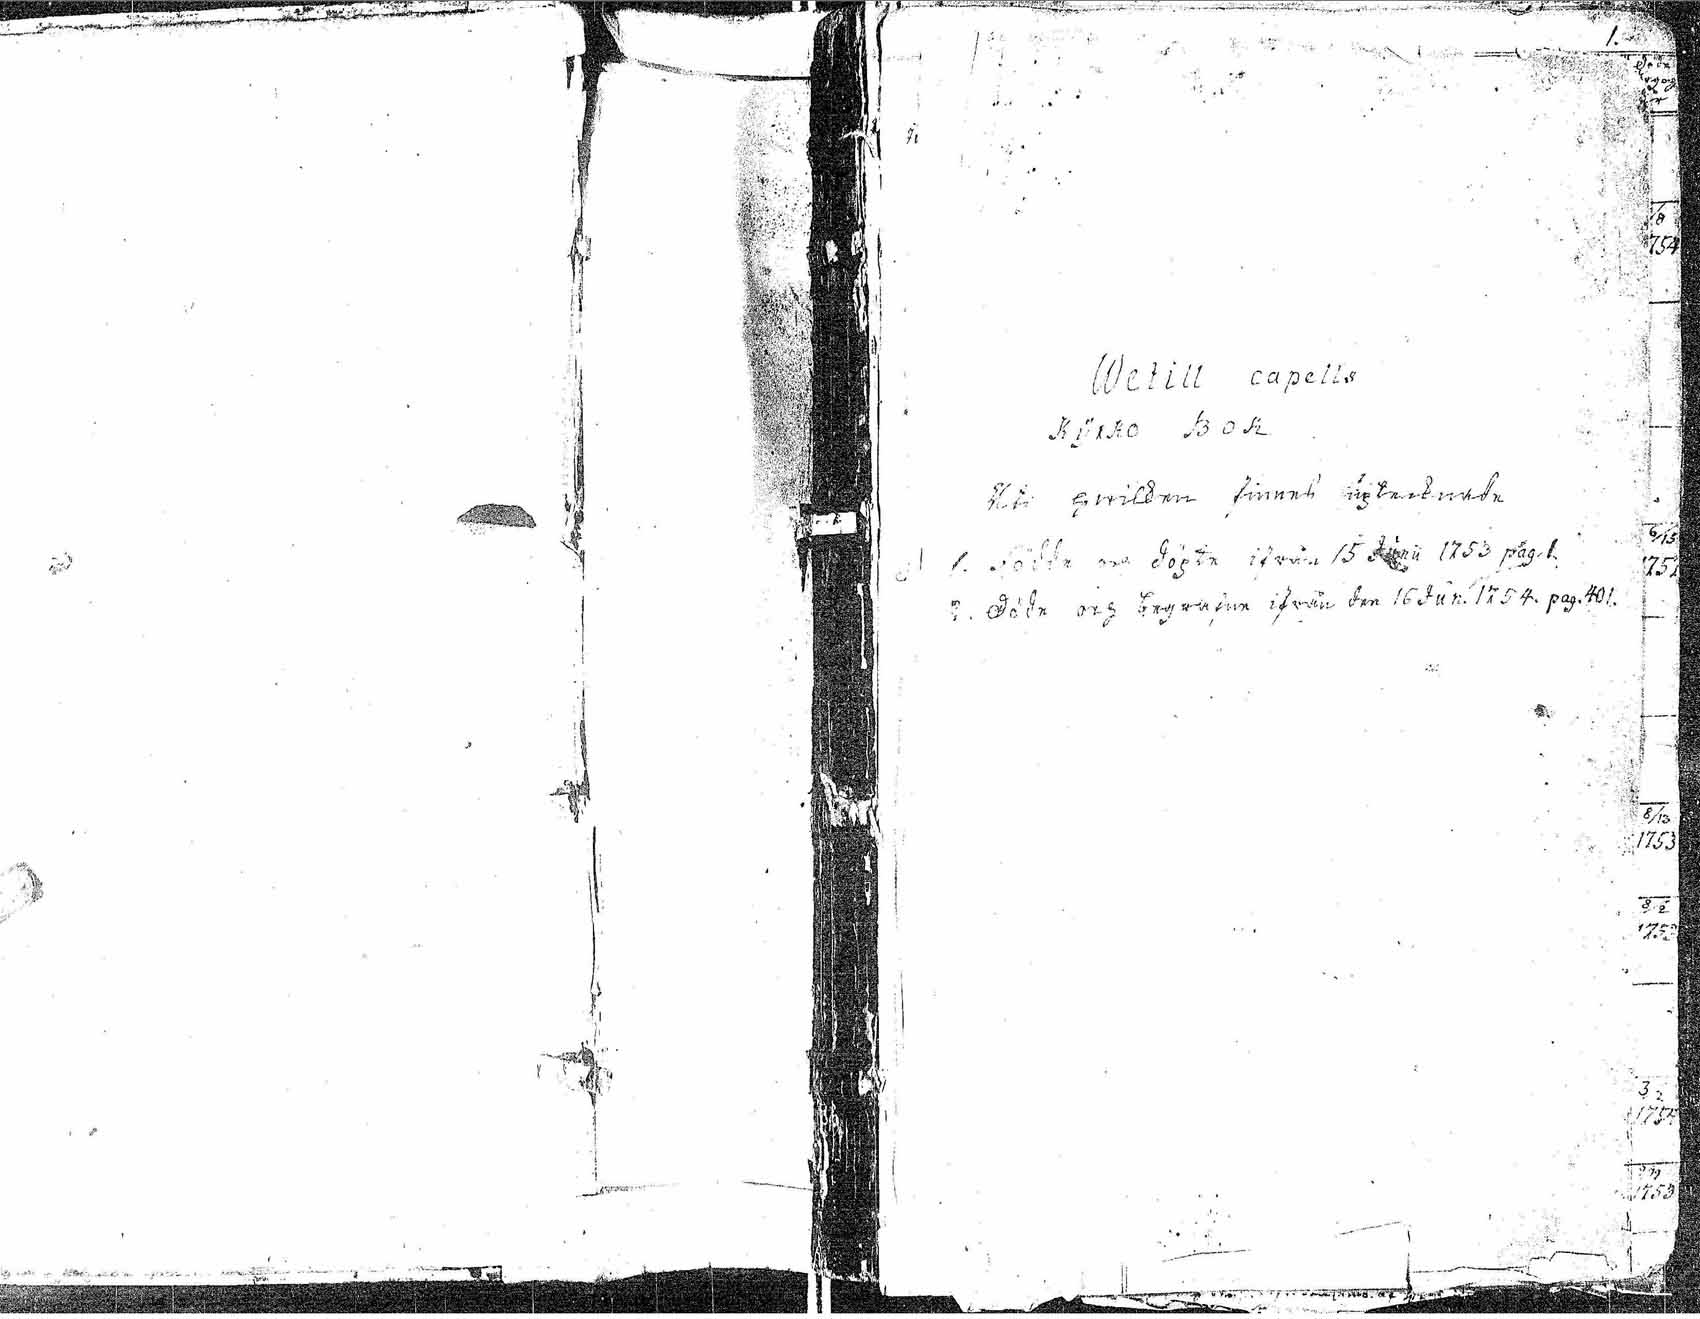 1.
Wetill capells
Kyrko Bok
Uti hwilken finnes upteknade
1. Födde och döpte ifrån 15 Junii 1753 pag. 1.
2. Döde och begrafne ifrån den 16 Jun. 1754. pag. 401.
1754
6/13
8/13
1753
1753